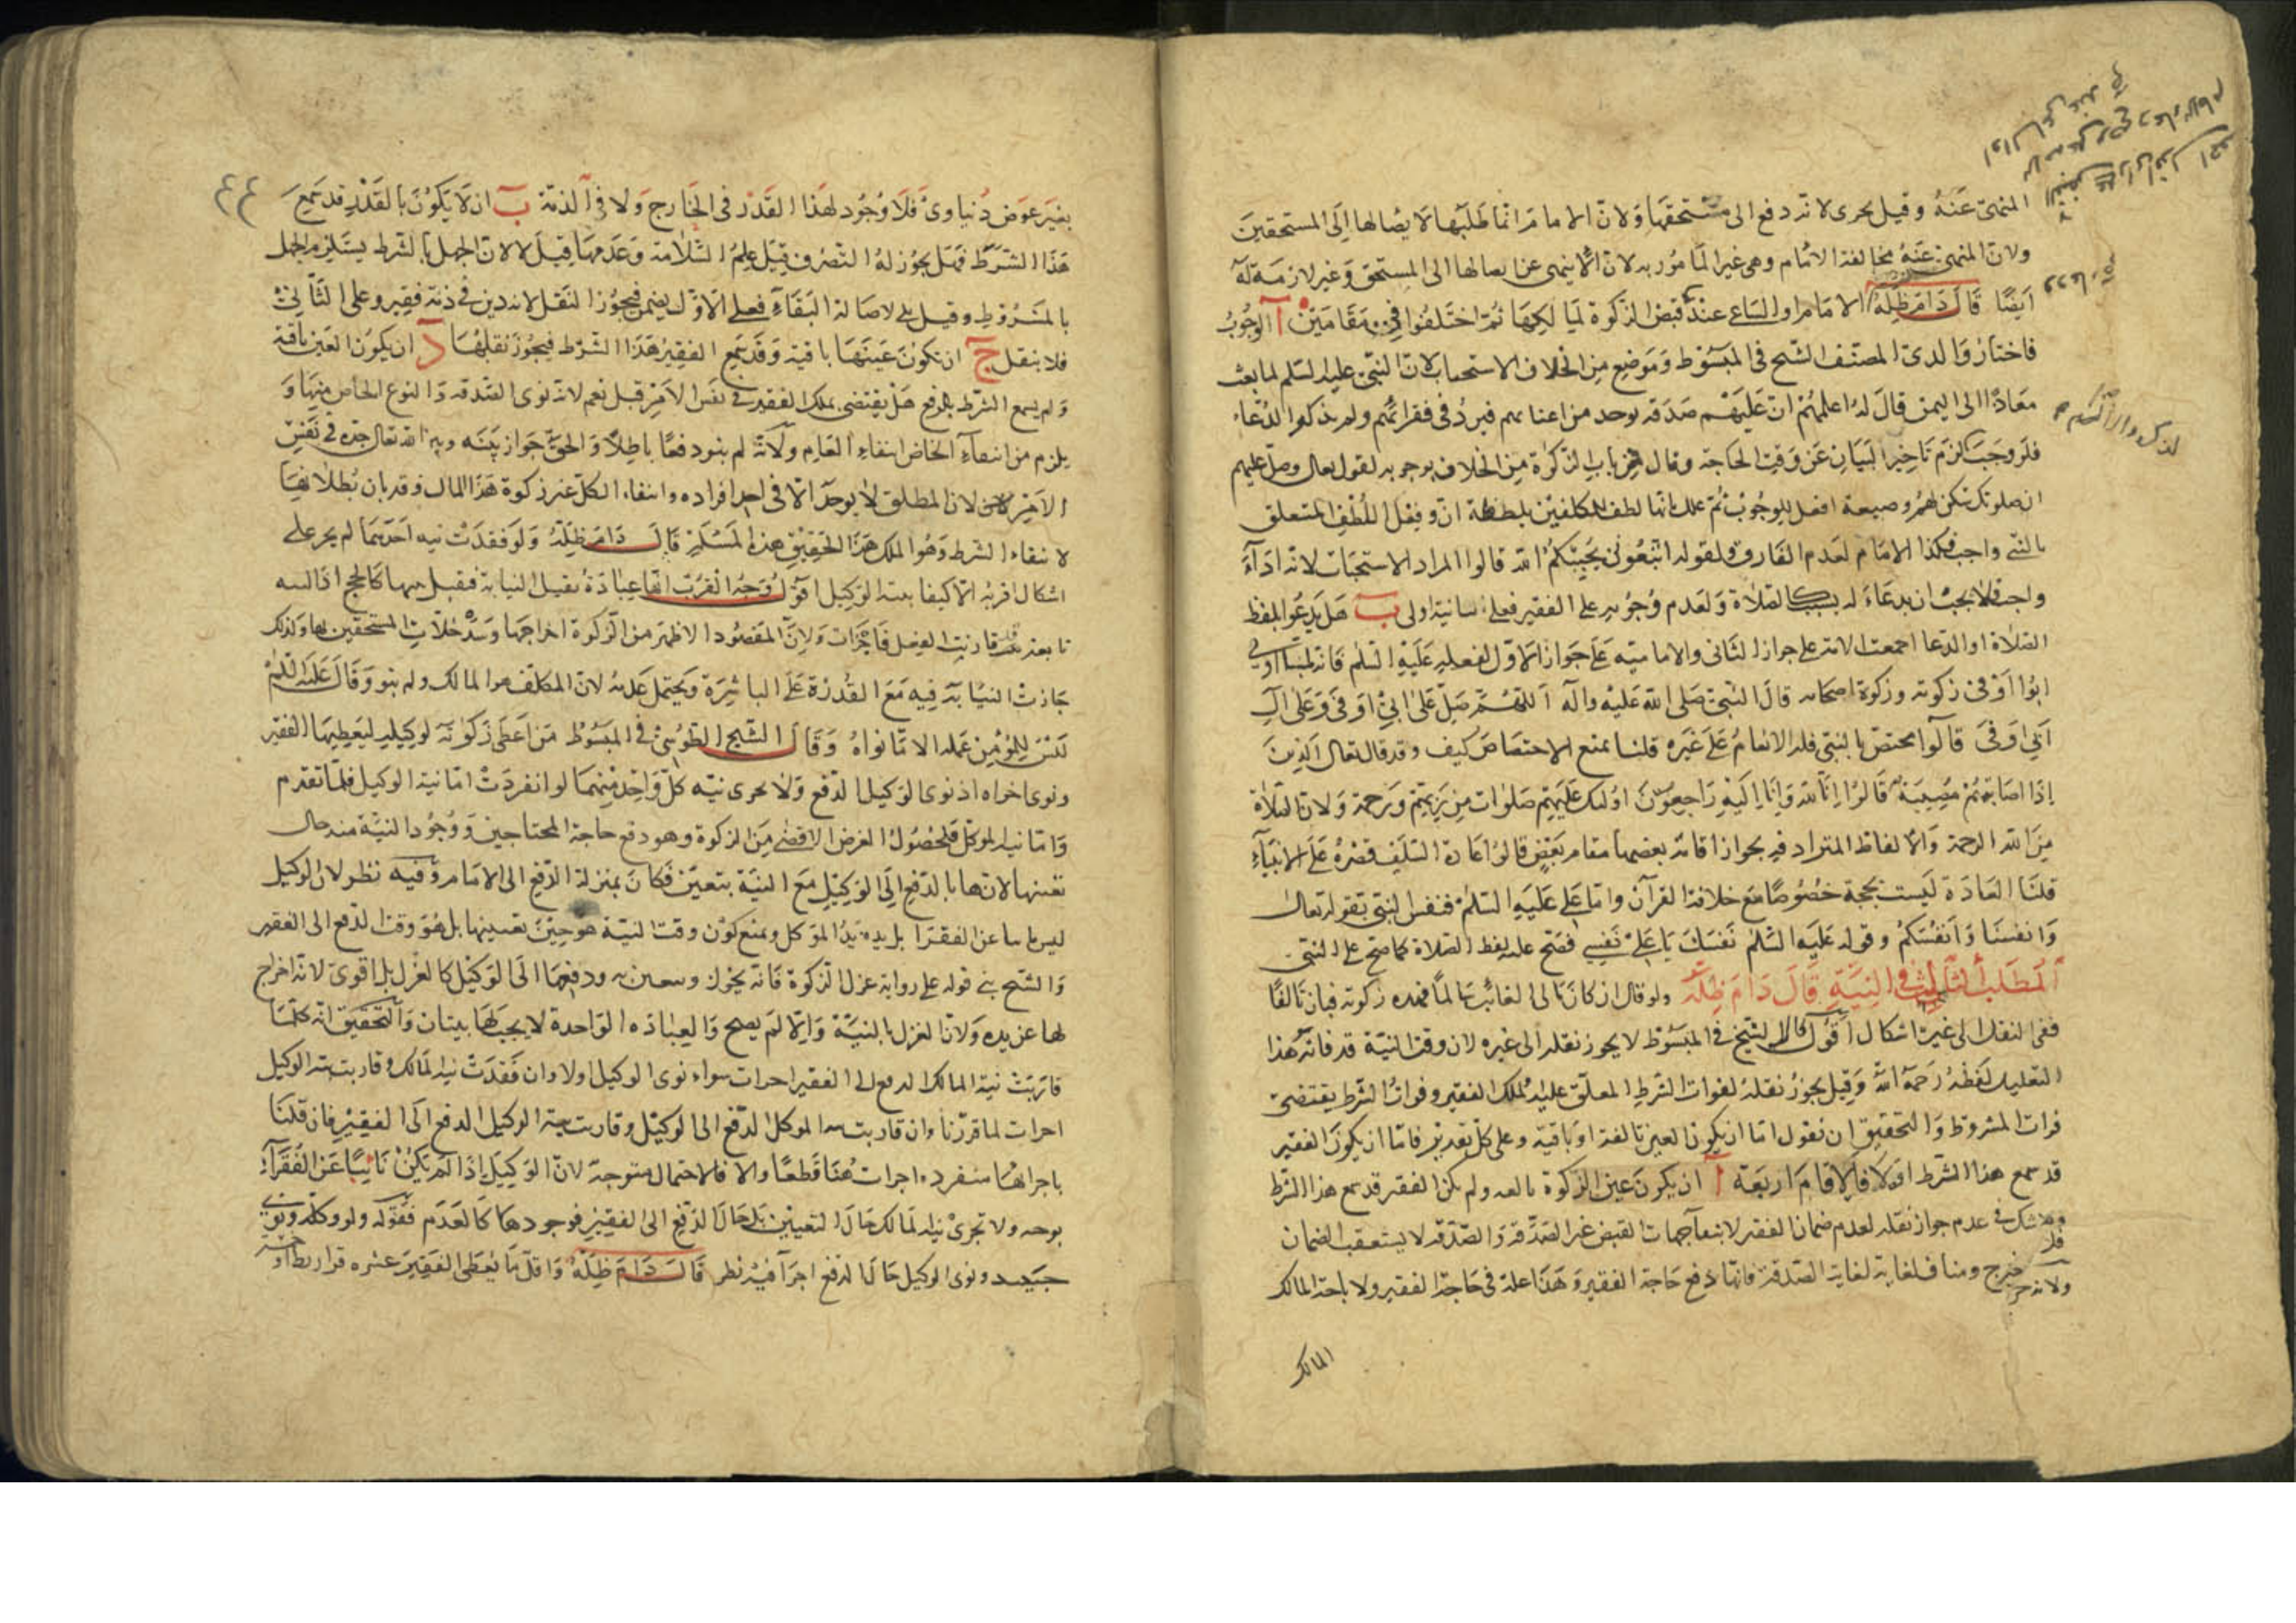 المنهى عنه وقيل يجرى لانه دفع الى مستحقها ولان الامام انما طلبها لايصالها الى المستحقين
ولان المنهى عنه مخالفة الامام وهى غير المأمور به لان الا ينهى عن ايصالها الى المستحق وغير لازمة له
ايضا قال دام ظله الامام او الساعى عند قبض الزكوة لمالكها ثم اختلفوا فى مقامين ا الوجوب
فاختار والدى المصنف الشيخ فى المبسوط وموضع من الخلاف الاستحباب لان النبى عليه السلم لما بعث
معاذا الى اليمن قال له اعلمهم ان عليهم صدقة توخذ من اغنيائهم فترد فى فقرائهم ولم يذكر الدعاء
فلو وجب لزم تاخير البيان عن وقت الحاجة وقال فى باب الزكوة من الخلاف بوجوبه لقوله تعالى وصل عليهم
ان صلوتك سكن لهم وصيغة افعل للوجوب ثم علل بانها لطف للمكلفين بلفظة ان وفعل اللطف المتعلق
بالنبى واجب فكذا الامام لعدم الفارق ولقوله اتبعونى يحببكم الله قالوا المراد الاستحباب لانه اداء
واجب فلا يجب ان يدعا له بسببه كالصلاة ولعدم وجوبه على الفقير فعلى الساعى اولى ب هل يدعو بلفظ
الصلاة او الدعا اجمعت الامة على جواز الثانى والامامية على جواز الاول لفعله عليه السلم فانه لما اتى
ابو اوفى زكوته وزكوة اصحابه قال النبى صلى الله عليه واله اللهم صل على ابى اوفى وعلى ال
ابى اوفى قالوا مختص بالنبى فله الانعام على غيره قلنا نمنع الاختصاص كيف وقد قال تعالى الذين
اذا اصابتهم مصيبة قالوا انا لله وانا اليه راجعون اولئك عليهم صلوات من ربهم ورحمة ولان الصلاة
من الله الرحمة والالفاظ المترادفة يجوز اقامة بعضها مقام بعض قالوا عادة السلف قصره على الانبياء
قلنا العادة ليست بحجة خصوصا مع خلافة القرآن واما على عليه السلم فنفس النبى بقوله تعالى
وانفسنا وانفسكم وقوله عليه السلم نفسك يا على نفسى فصح عليه لفظ الصلاة كما صح على النبى
المطلب الثالث فى النية قال دام ظله ولو قال ان كان مالى الغائب سالما فهذه زكوته فبان تالفا
ففى النقل الى غيره اشكال اقول قال الشيخ فى المبسوط لا يجوز نقله الى غيره لان وقت النية قد فاته هذا
التعليل لفظه رحمه الله وقيل يجوز نقله لفوات الشرط المعلق عليه لملك الفقير وفوات الشرط يقتضى
فوات المشروط والتحقيق ان نقول اما ان يكون العين تالفة او باقية وعلى كل تقدير فاما ان يكون الفقير
قد سمع هذا الشرط اولا فالاقسام اربعة ا ان يكون عين الزكوة تالفة ولم يكن الفقير قد سمع هذا الشرط
فلا شك فى عدم جواز نقله لعدم ضمان الفقير لانتفاء جهات القبض غير الصدقة والصدقة لا يستعقب الضمان
ولانه حرج ومناف لغاية الصدقة فانها دفع حاجة الفقير وهذا علة فى حاجة الفقير ولا باحة المالك
المالك
بغير عوض دنياوى فلا وجود لهذا القدر فى الخارج ولا فى الذمة ب ان لا يكون بالقدر قد سمع
هذا الشرط فهل يجوز له التصرف قبل علم السلامة وعدمها قيل لا لان الجهل بالشرط يستلزم الجهل
بالمشروط وقيل بلى لاصالة البقاء فعلى الاول يضمن فيجوز النقل لانه دين فى ذمة فقير وعلى الثانى
فلا ينقل ج ان تكون عينها باقية وقد سمع الفقير هذا الشرط فيجوز نقلها د ان يكون العين باقية
ولم يسمع الشرط بالدفع هل يقتضى تملك الفقير فى نفس الامر قيل نعم لانه نوى الصدقة والنوع الخاص منها و
يلزم من انتفاء الخاص انتفاء العام ولانه لم ينو دفعا باطلا والحق جواز بينه وبين الله تعالى جده فى نفس
الامر لان المطلق لا يوجد الا فى احد افراده وانتفاء الكل غير زكوة هذا المال وقد بان بطلانها
لانتفاء الشرط وهو الملك هذا تحقيق هذه المسئلة قال دام ظله ولو فقدت نية احدهما لم يجز على
اشكال اقربه الاكتفا بنية الوكيل اقول وجه القرب انها عبادة تقبل النيابة فتقبل نيتها كالحج اذ النية
تابعة وقد قارنت الفعل فاجزأت ولان المقصود الاظهر من الزكوة اخراجها وسد خلات المستحقين بها ولذلك
جازت النيابة فيه مع القدرة على المباشرة ويحتمل عدمه لان المكلف هو المالك ولم ينو وقال عليه السلم
ليس للمؤمن عمله الا ما نواه وقال الشيخ الطوسى فى المبسوط من اعطى زكوته لوكيله ليعطيها الفقير
ونوى اجزاه اذ نوى الوكيل الدفع ولا يجزى نية كل واحد منهما لو انفردت اما نية الوكيل فلما تقدم
واما نية الموكل فلحصول الغرض الاقصى من الزكوة وهو دفع حاجة المحتاجين ووجود النية منه حال
تعينها لانها بالدفع الى الوكيل مع النية يتعين فكان بمنزلة الدفع الى الامام وفيه نظر لان الوكيل
ليس نائبا عن الفقرا بل يده يد الموكل ونمنع كون وقت النية هو حين تعيينها بل هو وقت الدفع الى الفقير
والشيخ بنى قوله على رواية عزل الزكوة فانه يجوز وتتعين به ودفعها الى الوكيل كالعزل بل اقوى لانه اخراج
لها عن يده ولان العزل بالنية والا لم يصح والعبادة الواحدة لا يجب لها نيتان والتحقيق انه كلما
قارنت نية المالك الدفع الى الفقير اجزأت سواء نوى الوكيل اولا وان فقدت نية المالك وقارنت نية الوكيل
اجزأت لما قررنا وان قارنت نية الموكل الدفع الى الوكيل وقارنت نية الوكيل الدفع الى الفقير فان قلنا
باجزائها منفردة اجزأت هنا قطعا والا فالاحتمال متوجه لان الوكيل اذا لم يكن نائبا عن الفقراء
بوجه ولا تجزى نية المالك حال التعيين بل حال الدفع الى الفقير فوجودها كالعدم فقوله ولو وكله ونوى
حينئذ ونوى الوكيل حال الدفع اجزأ فيه نظر قال دام ظله واقل ما يعطى الفقير عشرة قراريط او